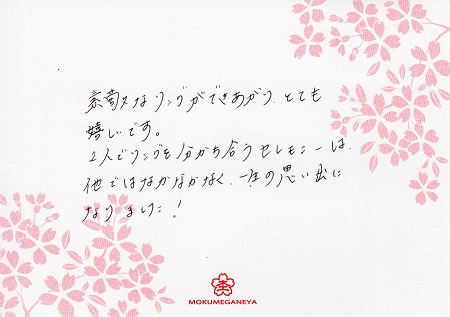 素敵なリングができあがり、とても
嬉しいです。
2人でリングを分かち合うセレモニーは、
他ではなかなかなく、一生の思い出に
なりました!
MOKUMEGANEYA